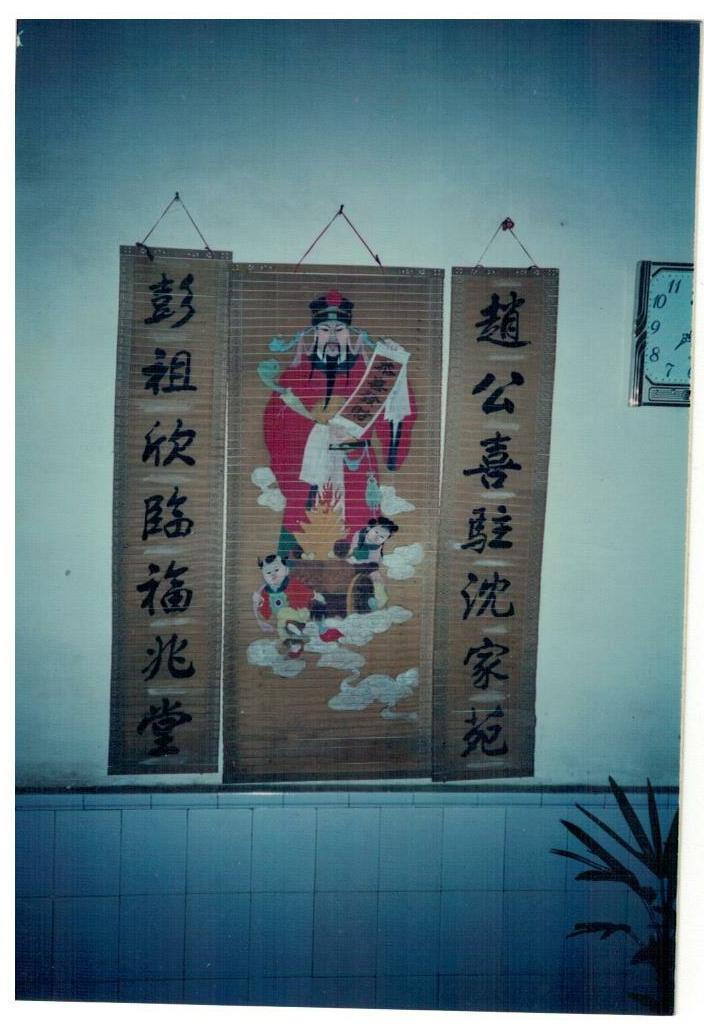 趙公喜駐沈家苑
彭祖欣臨福兆堂
11
10
9
8
7